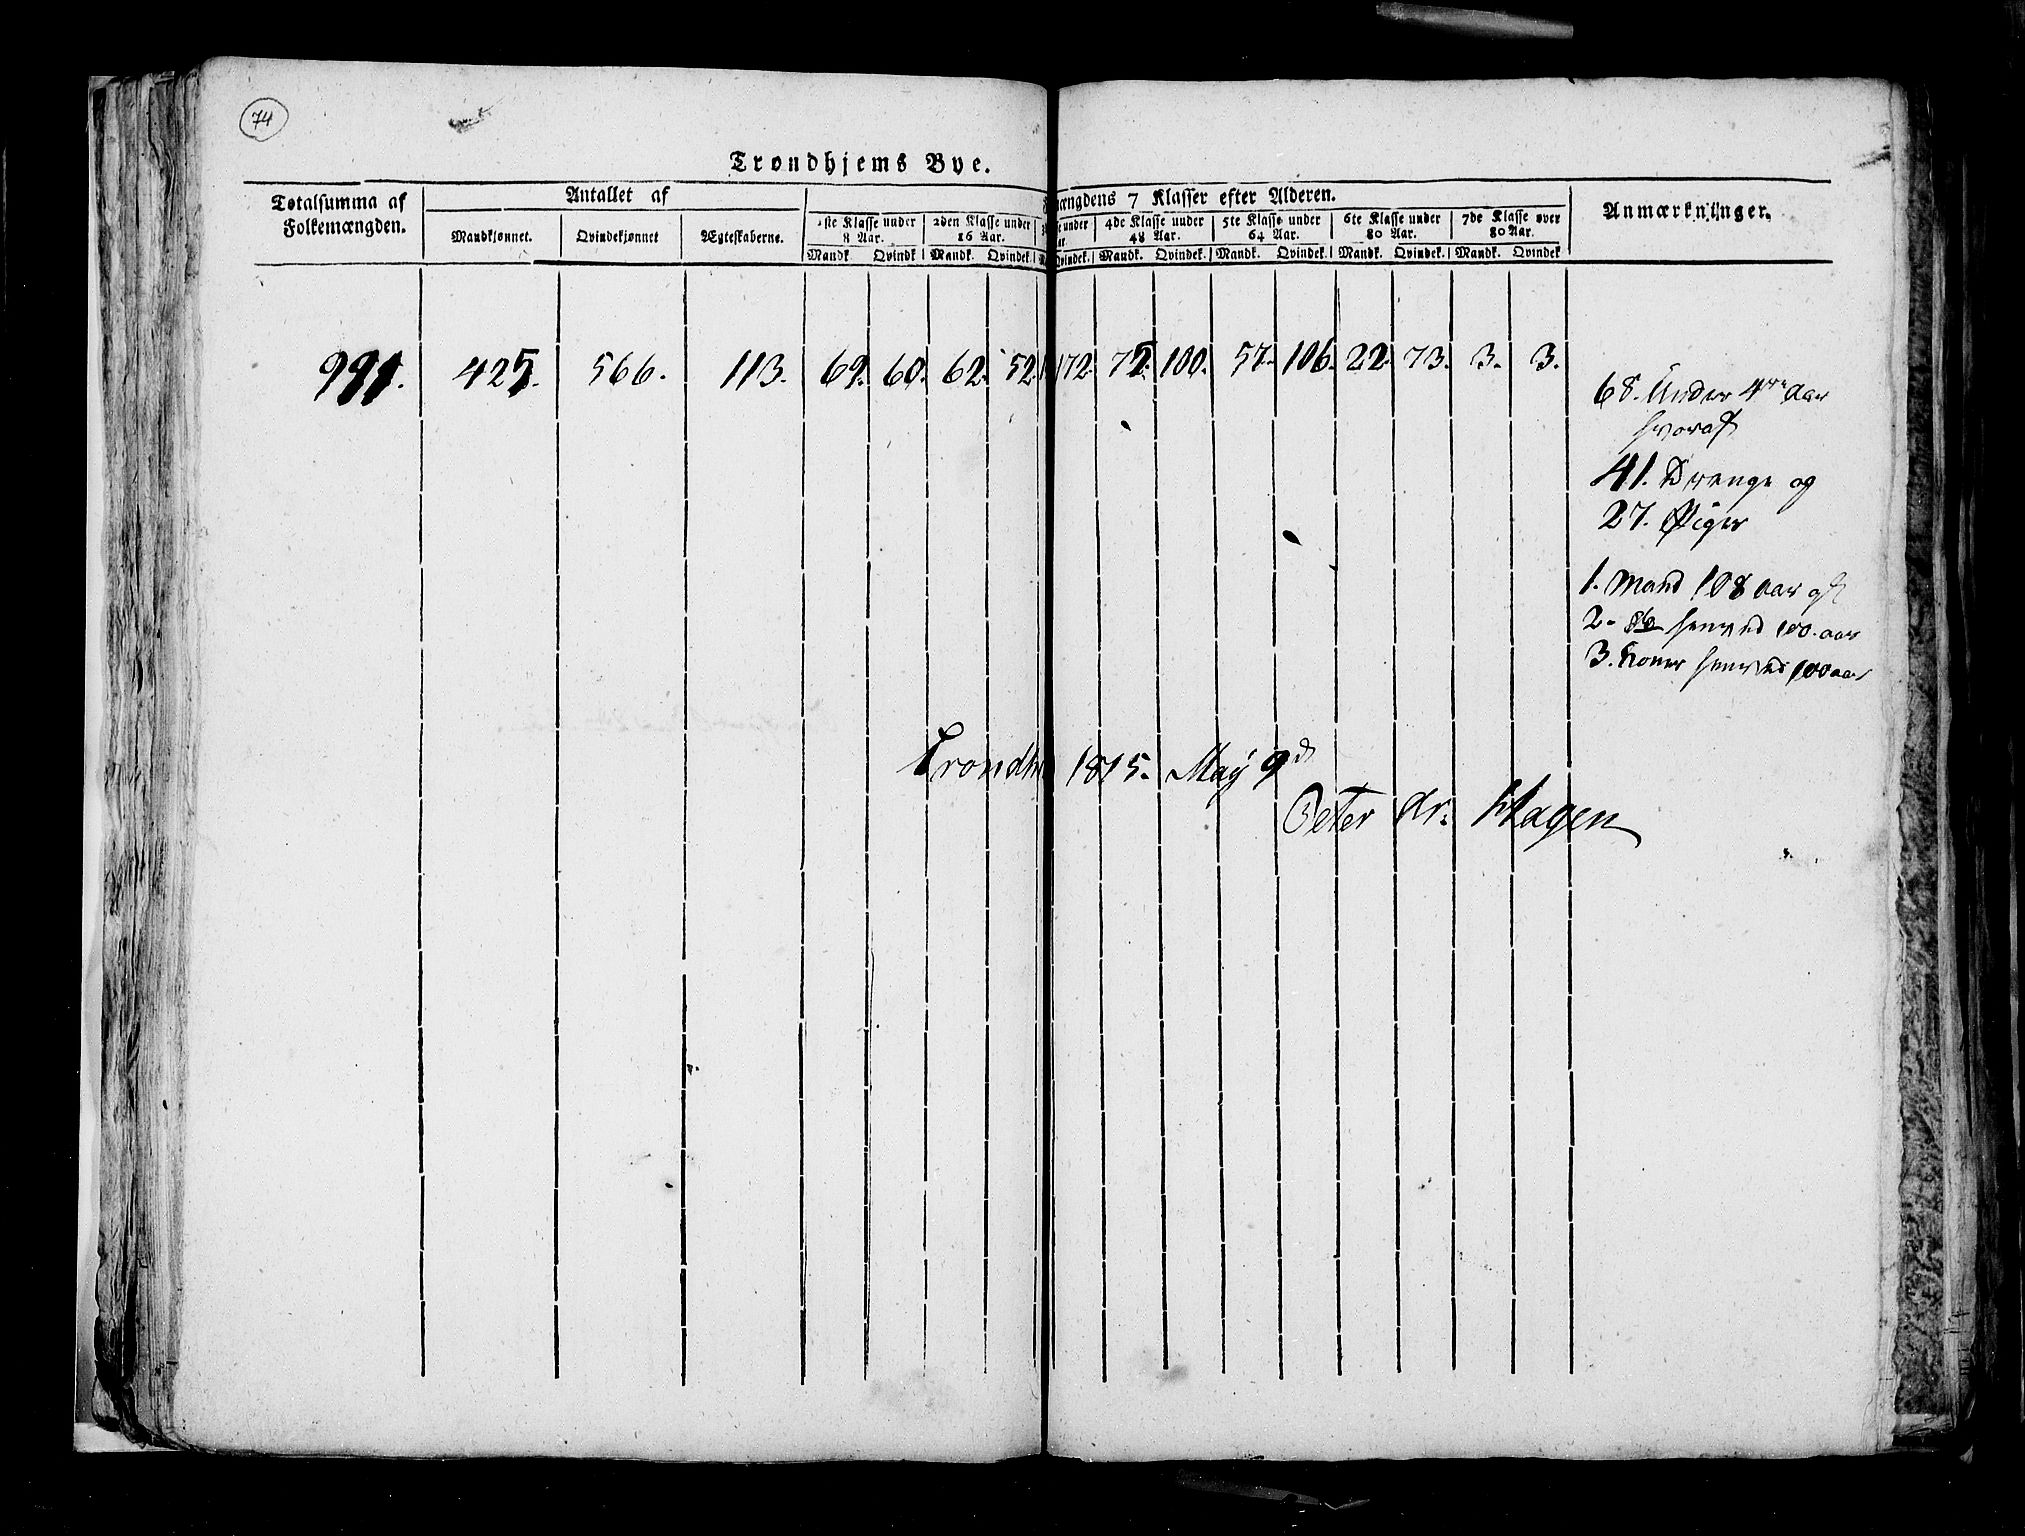 74
Trondhjems Bye.
Totalsumma af Folkemængden.
Antallet af
Mandkjønnet.
Qvindekjønnet
Ægteskaberne.
mængdens 7 Klasser efter Alderen.
1ste Klasse under 8 Aar.
2den Klasse under 16 Aar.
se under
4de Klasse under 48 Aar.
5te Klasse under 64 Aar.
6te Klasse under 80 Aar.
7de Klasse over 80 Aar.
Anmærkninger.
Mandk. Qvindk Mandk. Qvindek. Qvindek. Mandk. Qvindek. Mandk. Qvindek. Mandk. Qvindek. Mandk. Qvindek
991. 425. 566. 113. 69. 60. 62. 52. 172. 75. 100. 57. 106. 22. 73. 3. 3.
68. Under 4re Aar
hvoraf
41. Drenge og
27. Piger
1. Mand 108 aar
2- henved 100. aar
3. Koner henved 100 aar
Trondh 1815. May 9d
Peter Hagen